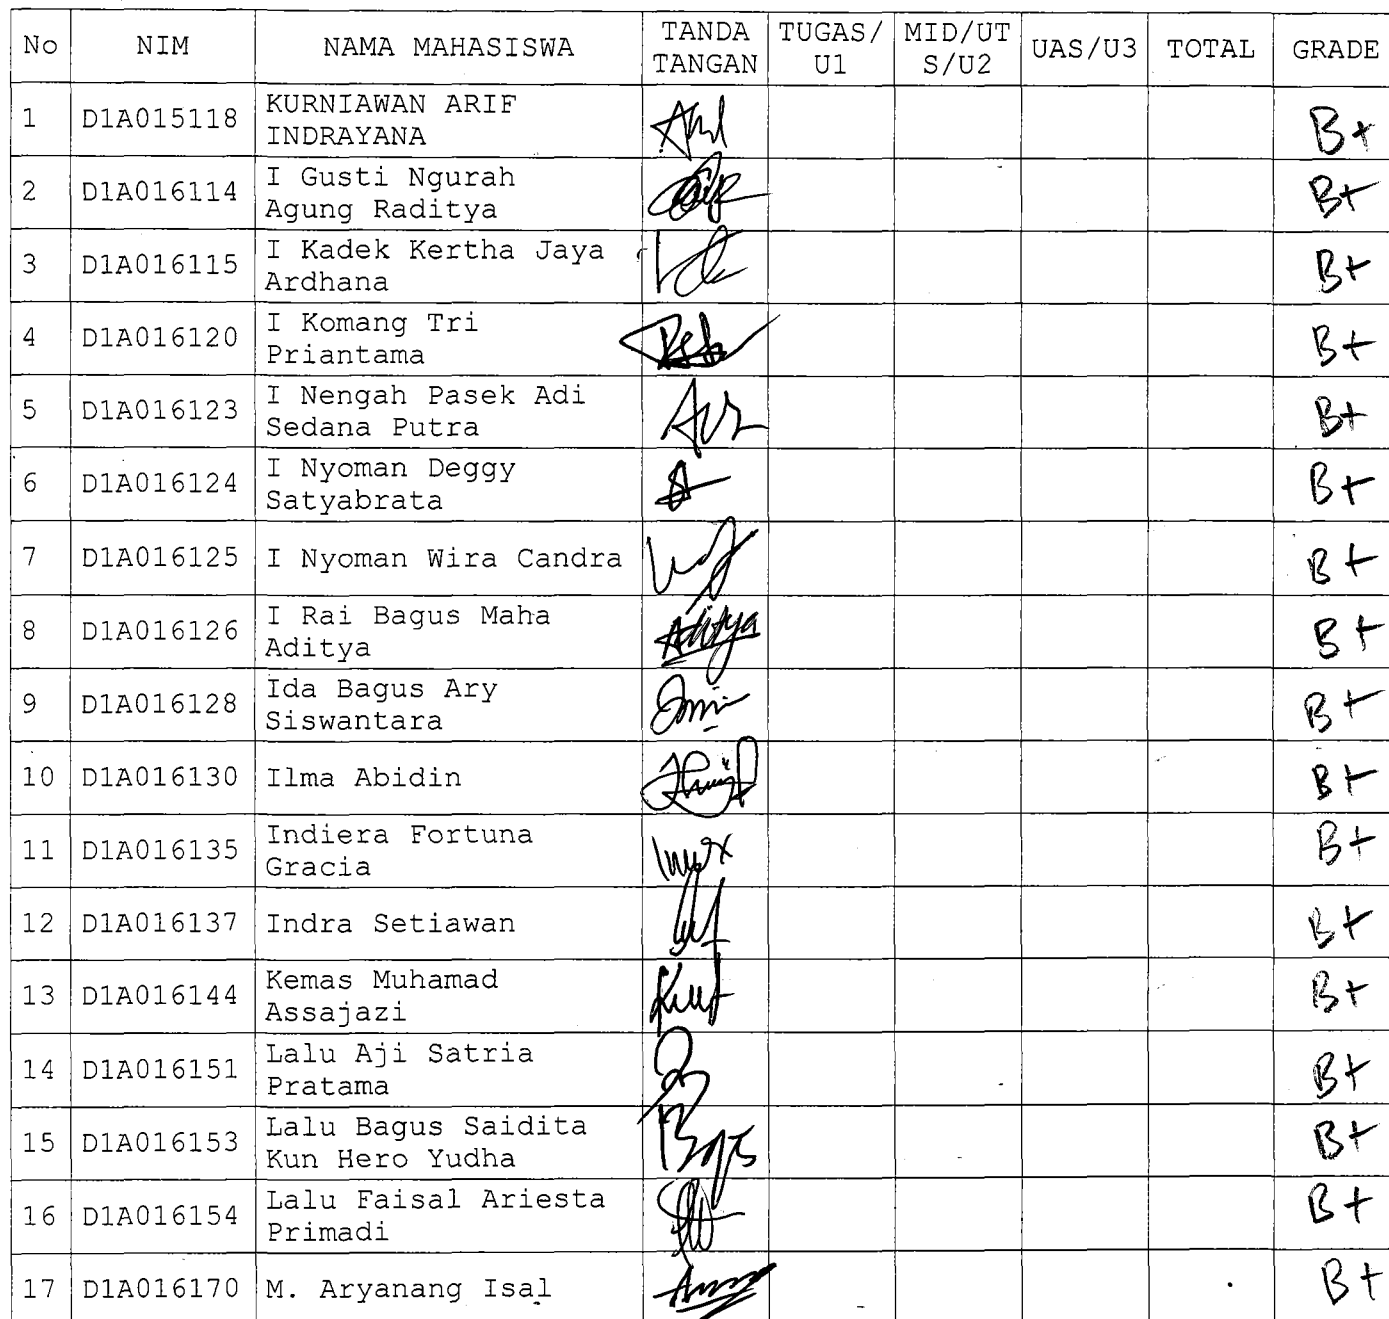 No NIM NAMA MAHASISWA TANDA TANGAN TUGAS/U1 MID/UTS/U2 UAS/U3 TOTAL GRADE
1 D1A015118 KURNIAWAN ARIF B+
INDRAYANA
2 D1A016114 I Gusti Ngurah B+
Agung Raditya
3 D1A016115 I Kadek Kertha Jaya B+
Ardhana
4 D1A016120 I Komang Tri B+
Priantama
5 D1A016123 I Nengah Pasek Adi B+
Sedana Putra
6 D1A016124 I Nyoman Deggy B+
Satyabrata
7 D1A016125 I Nyoman Wira Candra B+
8 D1A016126 I Rai Bagus Maha Aditya B+
Aditya
9 D1A016128 Ida Bagus Ary B+
Siswantara
10 D1A016130 Ilma Abidin B+
11 D1A016135 Indiera Fortuna B+
Gracia
12 D1A016137 Indra Setiawan B+
13 D1A016144 Kemas Muhamad B+
Assajazi
14 D1A016151 Lalu Aji Satria B+
Pratama
15 D1A016153 Lalu Bagus Saidita B+
Kun Hero Yudha
16 D1A016154 Lalu Faisal Ariesta B+
Primadi
17 D1A016170 M. Aryanang Isal B+